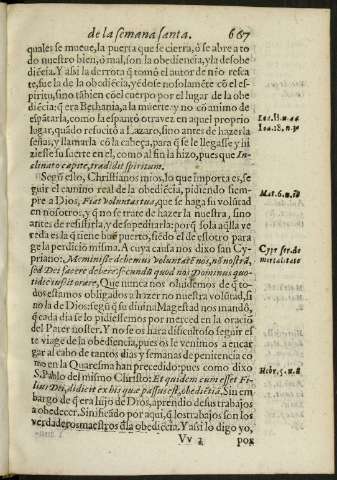 de la semana santa. 667
quales se mueue, la puerta que se cierra, ò se abre a to
do nuestro bien, ò mal, son la obediẽcia, y la desobe
diẽcia. Y assi la derrota q̃ tomò el autor de nr̃o resca
te, fue la de la obediẽcia, yẽdose no solamẽte cõ el es-
piritu, sino tãbien cõ el cuerpo por el lugar de la obe
diẽcia: q̃ era Bethania, a la muerte: y no cõ animo de
espãtarla, como la espantò otra vez en aquel proprio
lugar, quãdo resucitò a Lazaro, sino antes de hazerla
señas, y llamarla cõ la cabeça, para q̃ se le llegasse y hi
ziesse su suerte en el, como al fin la hizo, pues que In-
clinato capite, tradidit spiritum.
Segũ esto, Christianos mios, lo que importa es, se
guir el camino real de la obediẽcia, pidiendo siem-
pre a Dios, Fiat voluntas tua, que se haga su volũtad
en nosotros, y q̃ no se trate de hazer la nuestra, sino
antes de resistirla, y desupeditarla: porq̃ sola aq̃lla ve
reda es la q̃ tiene buẽ puerto, siẽdo el de estotro para
ge la perdiciõ misma. A cuya causa nos dixo san Cy-
priano: Meminisse debemus voluntatẽ nos, nõ nostrã,
sed Dei facere debere: secundũ quod nos Dominus quo-
tidie iussit orare, Que nunca nos oluidemos de q̃ to-
dos estamos obligados a hazer no nuestra volũtad, si
no la de Dios: segũ q̃ su diuina Magestad nos mandò,
q̃ cada dia se lo pidiessemos por merced en la oraciõ
del Pater noster. Y no se os hara dificultoso seguir es
te viage de la obediencia, pues os le venimos a encar
gar al cabo de tantos dias y semanas de penitencia co
mo en la Quaresma han precedido: pues como dixo
S. Pablo del mismo Christo: Et quidem cum esset Fi-
lius Dei, didicit ex his quæ passus est, obediẽtiã. Sin em
bargo de q̃ era hijo de Dios, aprendio de sus trabajos
a obedecer. Sinificãdo por aqui, q̃ los trabajos son los
verdaderos maestros dla obediẽcia. Y assi lo digo yo,
Vv 2 por
Mat. 6. n. 10
Cypr. ser. de
mortalitate
Hebr. 5. n. 8